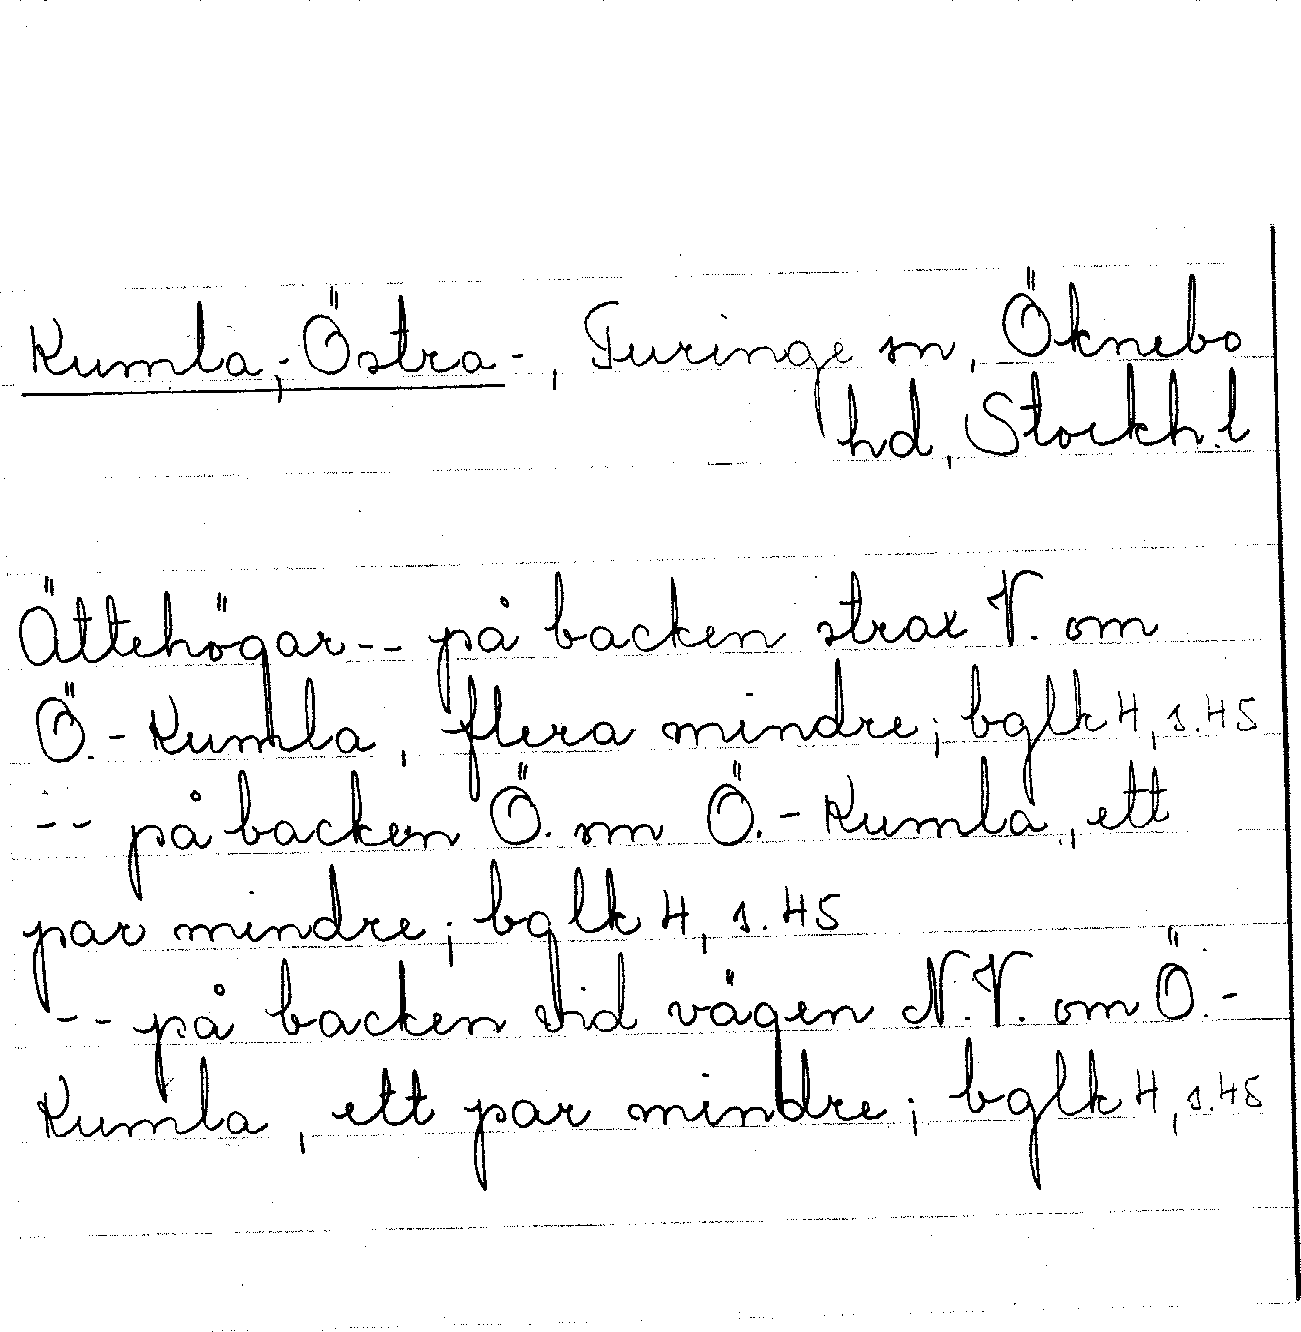 Kumla, Östra -, Turinge sn, Öknebo
hd, Stockh. l
Ättehögar -- på backen strax V. om
Ö.-Kumla, flera mindre; bglk 4, s. 45
-- på backen Ö. om Ö.-Kumla, ett
par mindre; bglk 4, s. 45
-- på backen vid vägen N.V. om Ö.-
Kumla, ett par mindre; bglk 4, s. 45